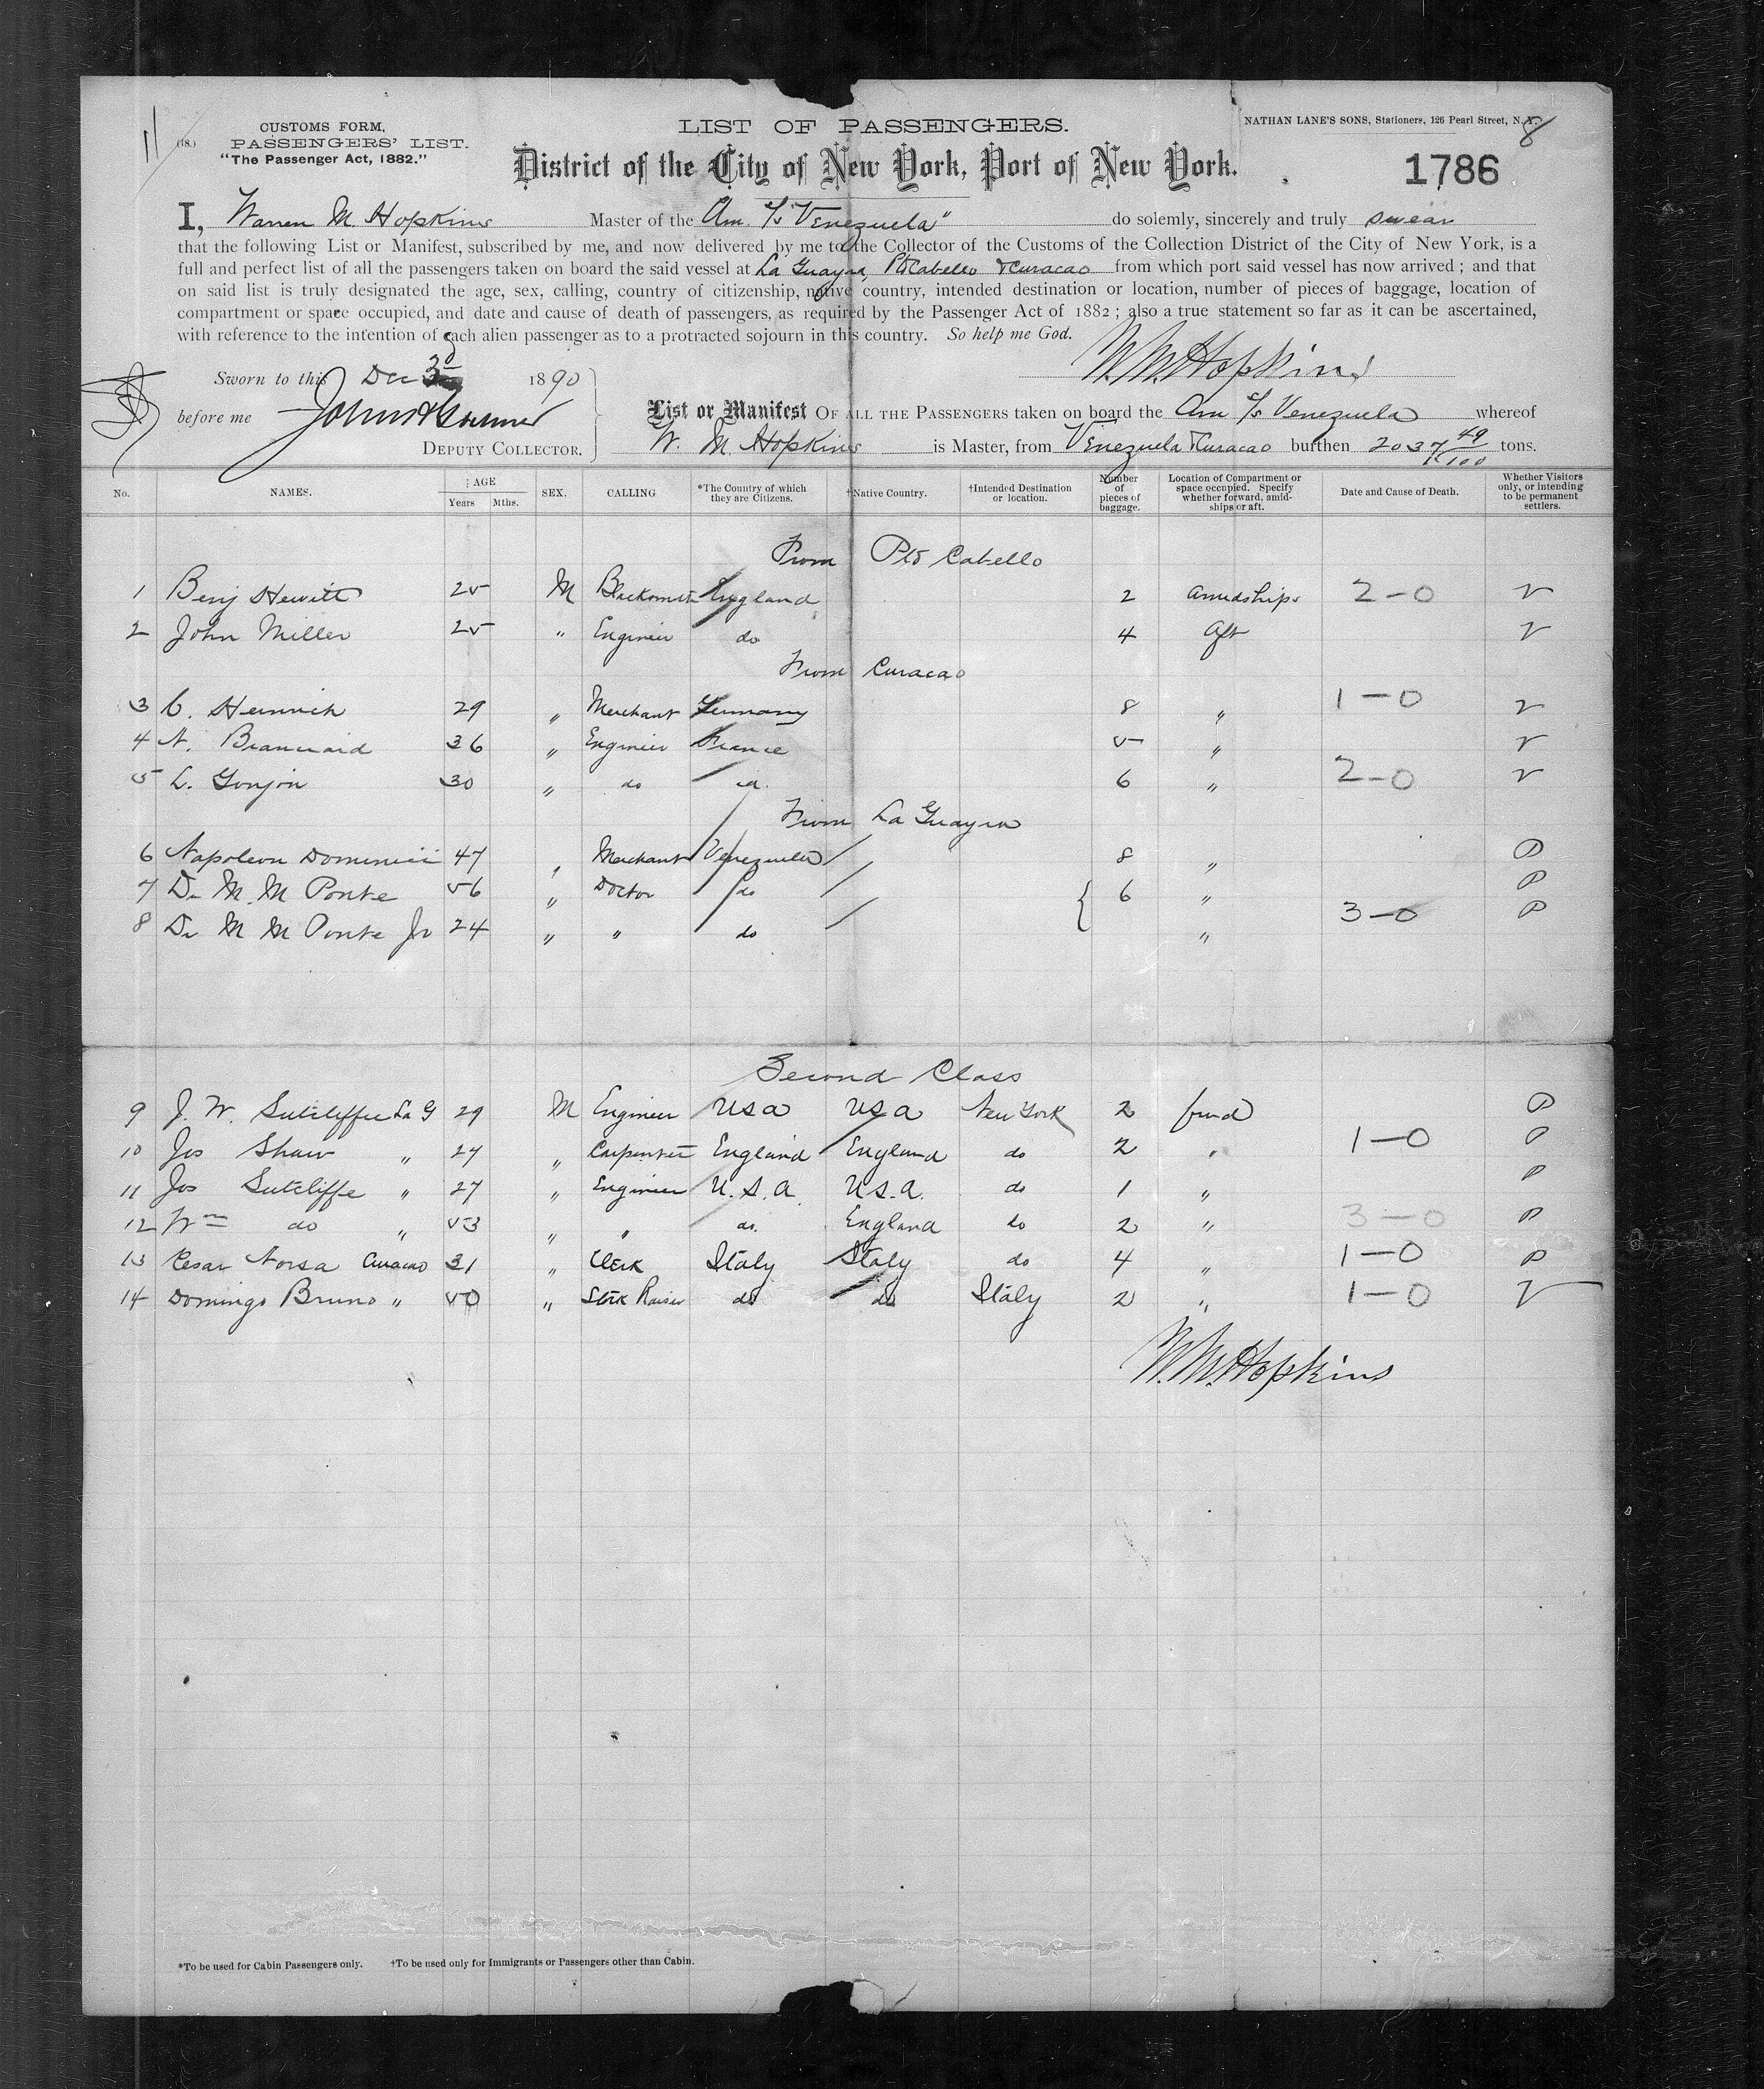 11
(18.)
CUSTOMS FORM,
PASSENGERS' LIST.
"The Passenger Act, 1882."
LIST OF PASSENGERS.
District of the City of New York, Port of New York.
NATHAN LANE'S SONS, Stationers, 126 Pearl Street, N.Y.
8
1786
I, Warren M. Hopkins Master of the Am. S/s "Venezuela" do solemnly, sincerely and truly swear
that the following List or Manifest, subscribed by me, and now delivered by me to the Collector of the Customs of the Collection District of the City of New York, is a
full and perfect list of all the passengers taken on board the said vessel at La Guayra, Pto Cabello & Curacao from which port said vessel has now arrived ; and that
on said list is truly designated the age, sex, calling, country of citizenship, native country, intended destination or location, number of pieces of baggage, location of
compartment or space occupied, and date and cause of death of passengers, as required by the Passenger Act of 1882 ; also a true statement so far as it can be ascertained,
with reference to the intention of each alien passenger as to a protracted sojourn in this country. So help me God.
W. M. Hopkins
Sworn to this Dec 3 1890
before me
DEPUTY COLLECTOR.
List or Manifest OF ALL THE PASSENGERS taken on board the Am S/s Venezuela whereof
W. M. Hopkins is Master, from Venezuela & Curacao burthen 2037 49/100 tons.
No. NAMES. AGE Years Mths. SEX. CALLING *The Country of which they are Citizens. †Native Country. †Intended Destination or location. Number of pieces of baggage. Location of Compartment or space occupied. Specify whether forward, amidships or aft. Date and Cause of Death. Whether Visitors only, or intending to be permanent settlers.
From Pto Cabello
1 Benj Hewitt 25 M Blacksmith England 2 Amidships 2-0 V
2 John Miller 25 " Engineer do 4 Aft V
From Curacao
3 C. Heinrich 29 " Merchant Germany 8 " 1-0 V
4 N. 36 " Engineer France 5 " V
5 L. Gonjon 30 " do id. 6 " 2-0 V
From La Guayra
6 Napoleon Dominici 47 " Merchant Venezuela 8 " P
7 Dr M. M Ponte 56 " Doctor do 6 " P
8 Dr M M Ponte Jr 24 " " do " 3-0 P
Second Class
9 J. W. Sutcliffe La G 29 M Engineer USA USA New York 2 forwd P
10 Jos Shaw " 27 " Carpenter England England do 2 " 1-0 P
11 Jos Sutcliffe " 27 " Engineer U.S.A. U.S.A. do 1 " P
12 Wm do " 53 " " do. England do 2 " 3-0 P
13 Cesar Norsa Curacao 31 " Clerk Italy Italy do 4 " 1-0 P
14 Domingo Bruno " 50 " Stock Raiser do do Italy 2 " 1-0 V
W. M. Hopkins
*To be used for Cabin Passengers only. †To be used only for Immigrants or Passengers other than Cabin.